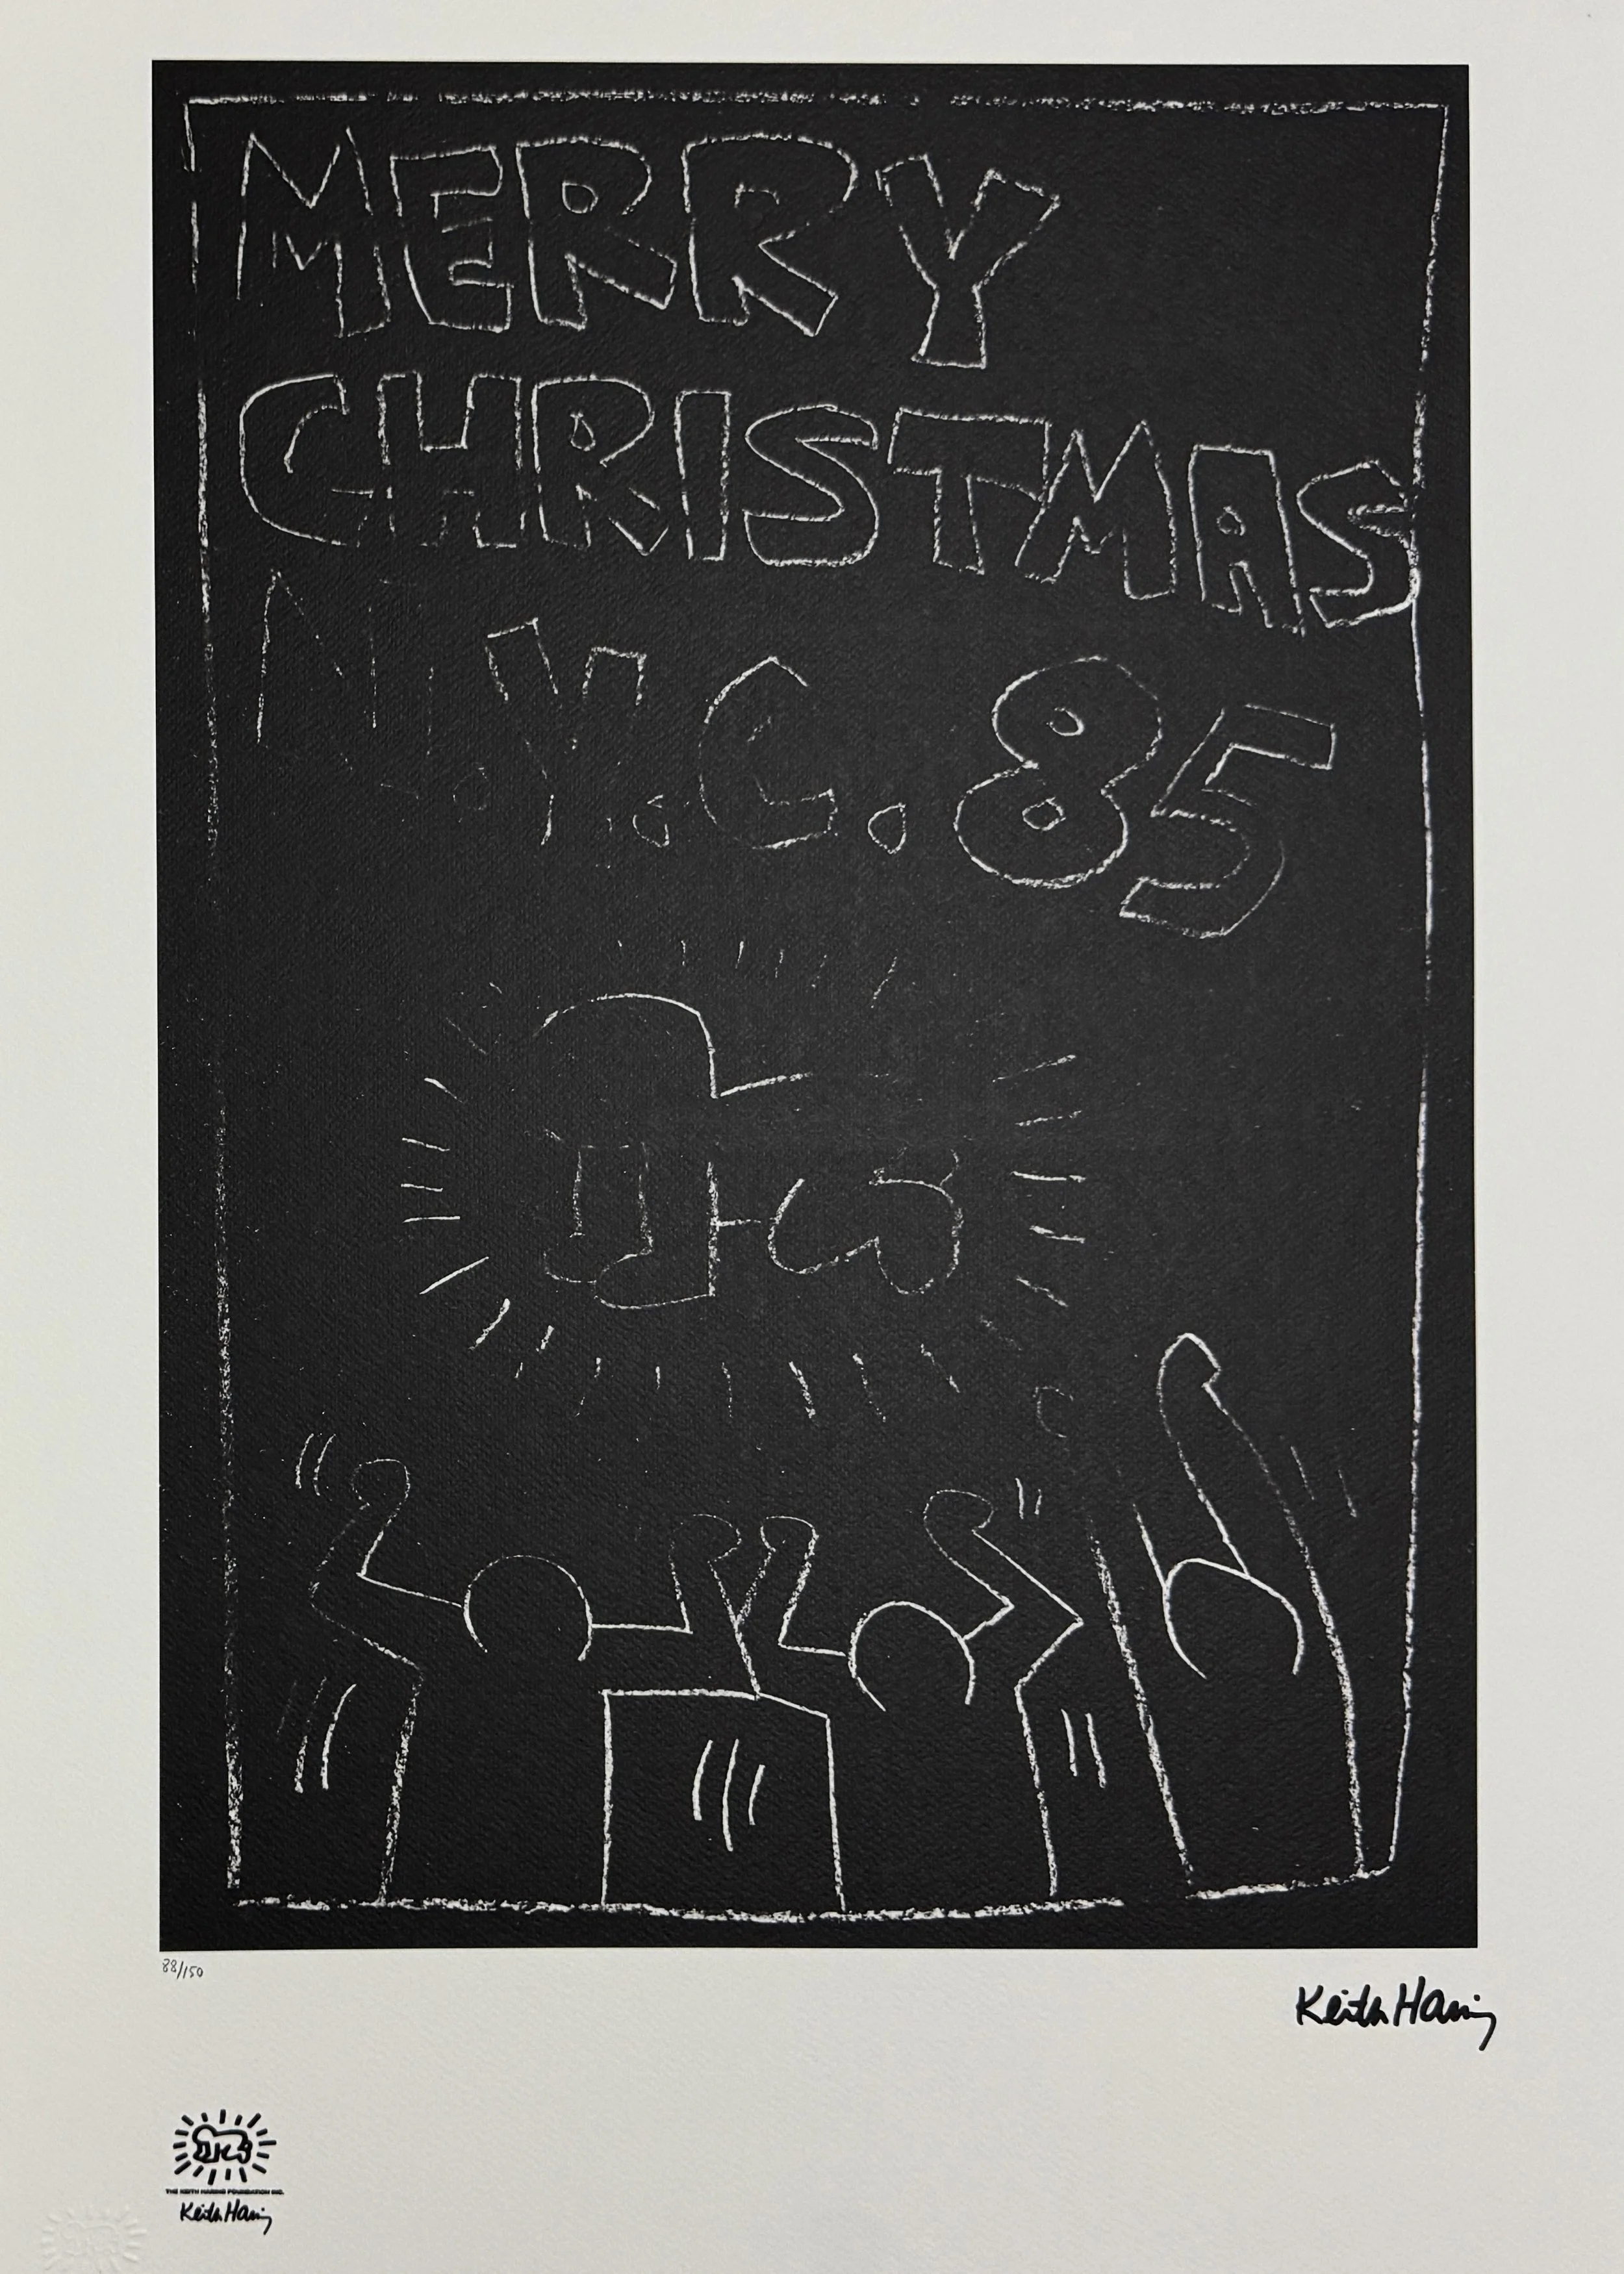 MERRY
CHRISTMAS
N.Y.C. 85
88/150
Keith Haring
THE KEITH HARING FOUNDATION INC.
Keith Haring